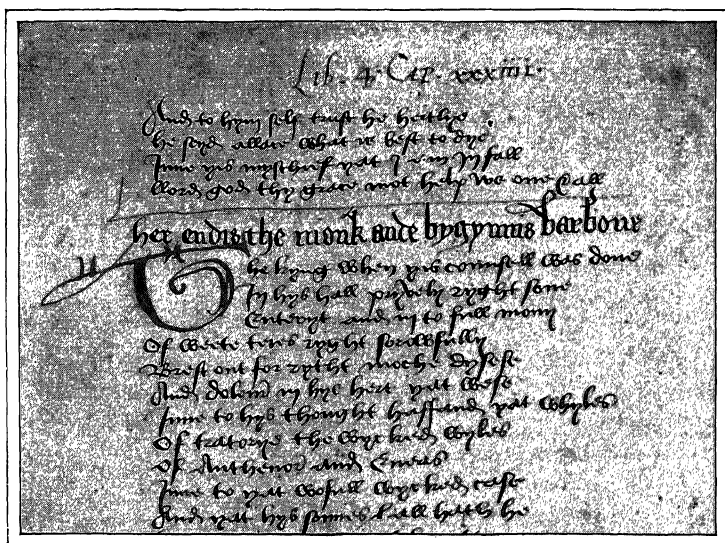 Lib. 4. Cap. xxxiiii.
And to hym self trast he heithye
he seyd allace what is best to dye
Inne yis myschef yat I am In fall
llord god thy grace mot help ws one Call
her endis the monk ande bygynnis barbour
The kyng when yis counsell was done
In hys hall pryvely ryght sone
Enteryt and in to full mony
Of weete teres ryght sorowfully
Brest out for rytht moche dysese
And dolour in hys hert yat wese
Inne to hys thought haffand yat whyles
Of tratorye the wyckked wyles
Of Anthenor and Eneas
Inne to yat wofull wycked case
And yat hys sonnes all hath he